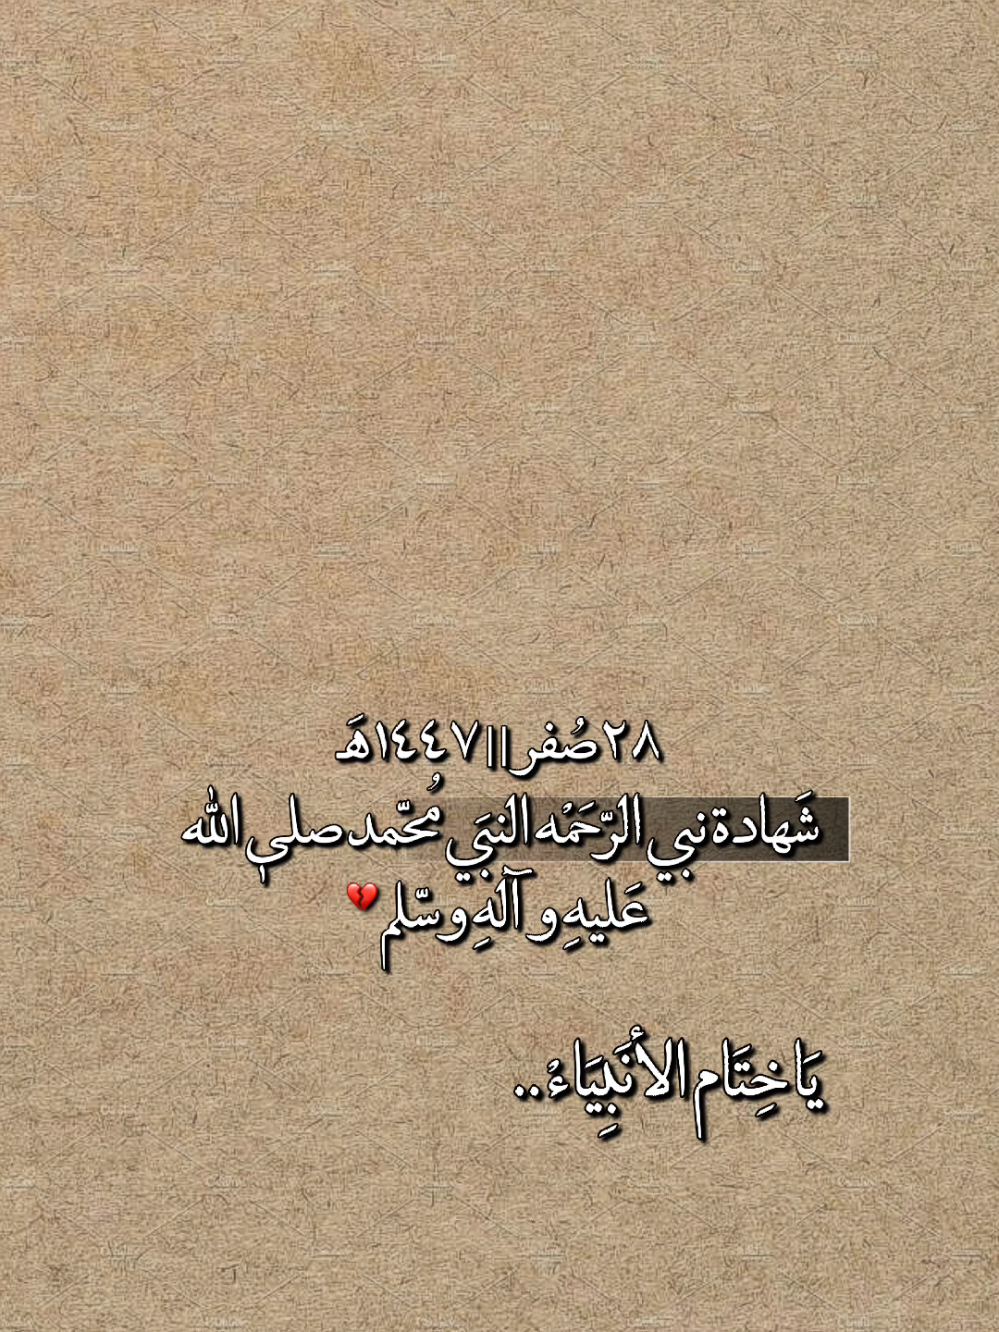 ٢٨ صُفر||١٤٤٧هَ
شَهادة نبي الرّحَمْه النبَي مُحمّد صلى الله
عَليهِ و آلهِ وسّلم 💔
يَا خِتَام الأنَبِيَاءْ..